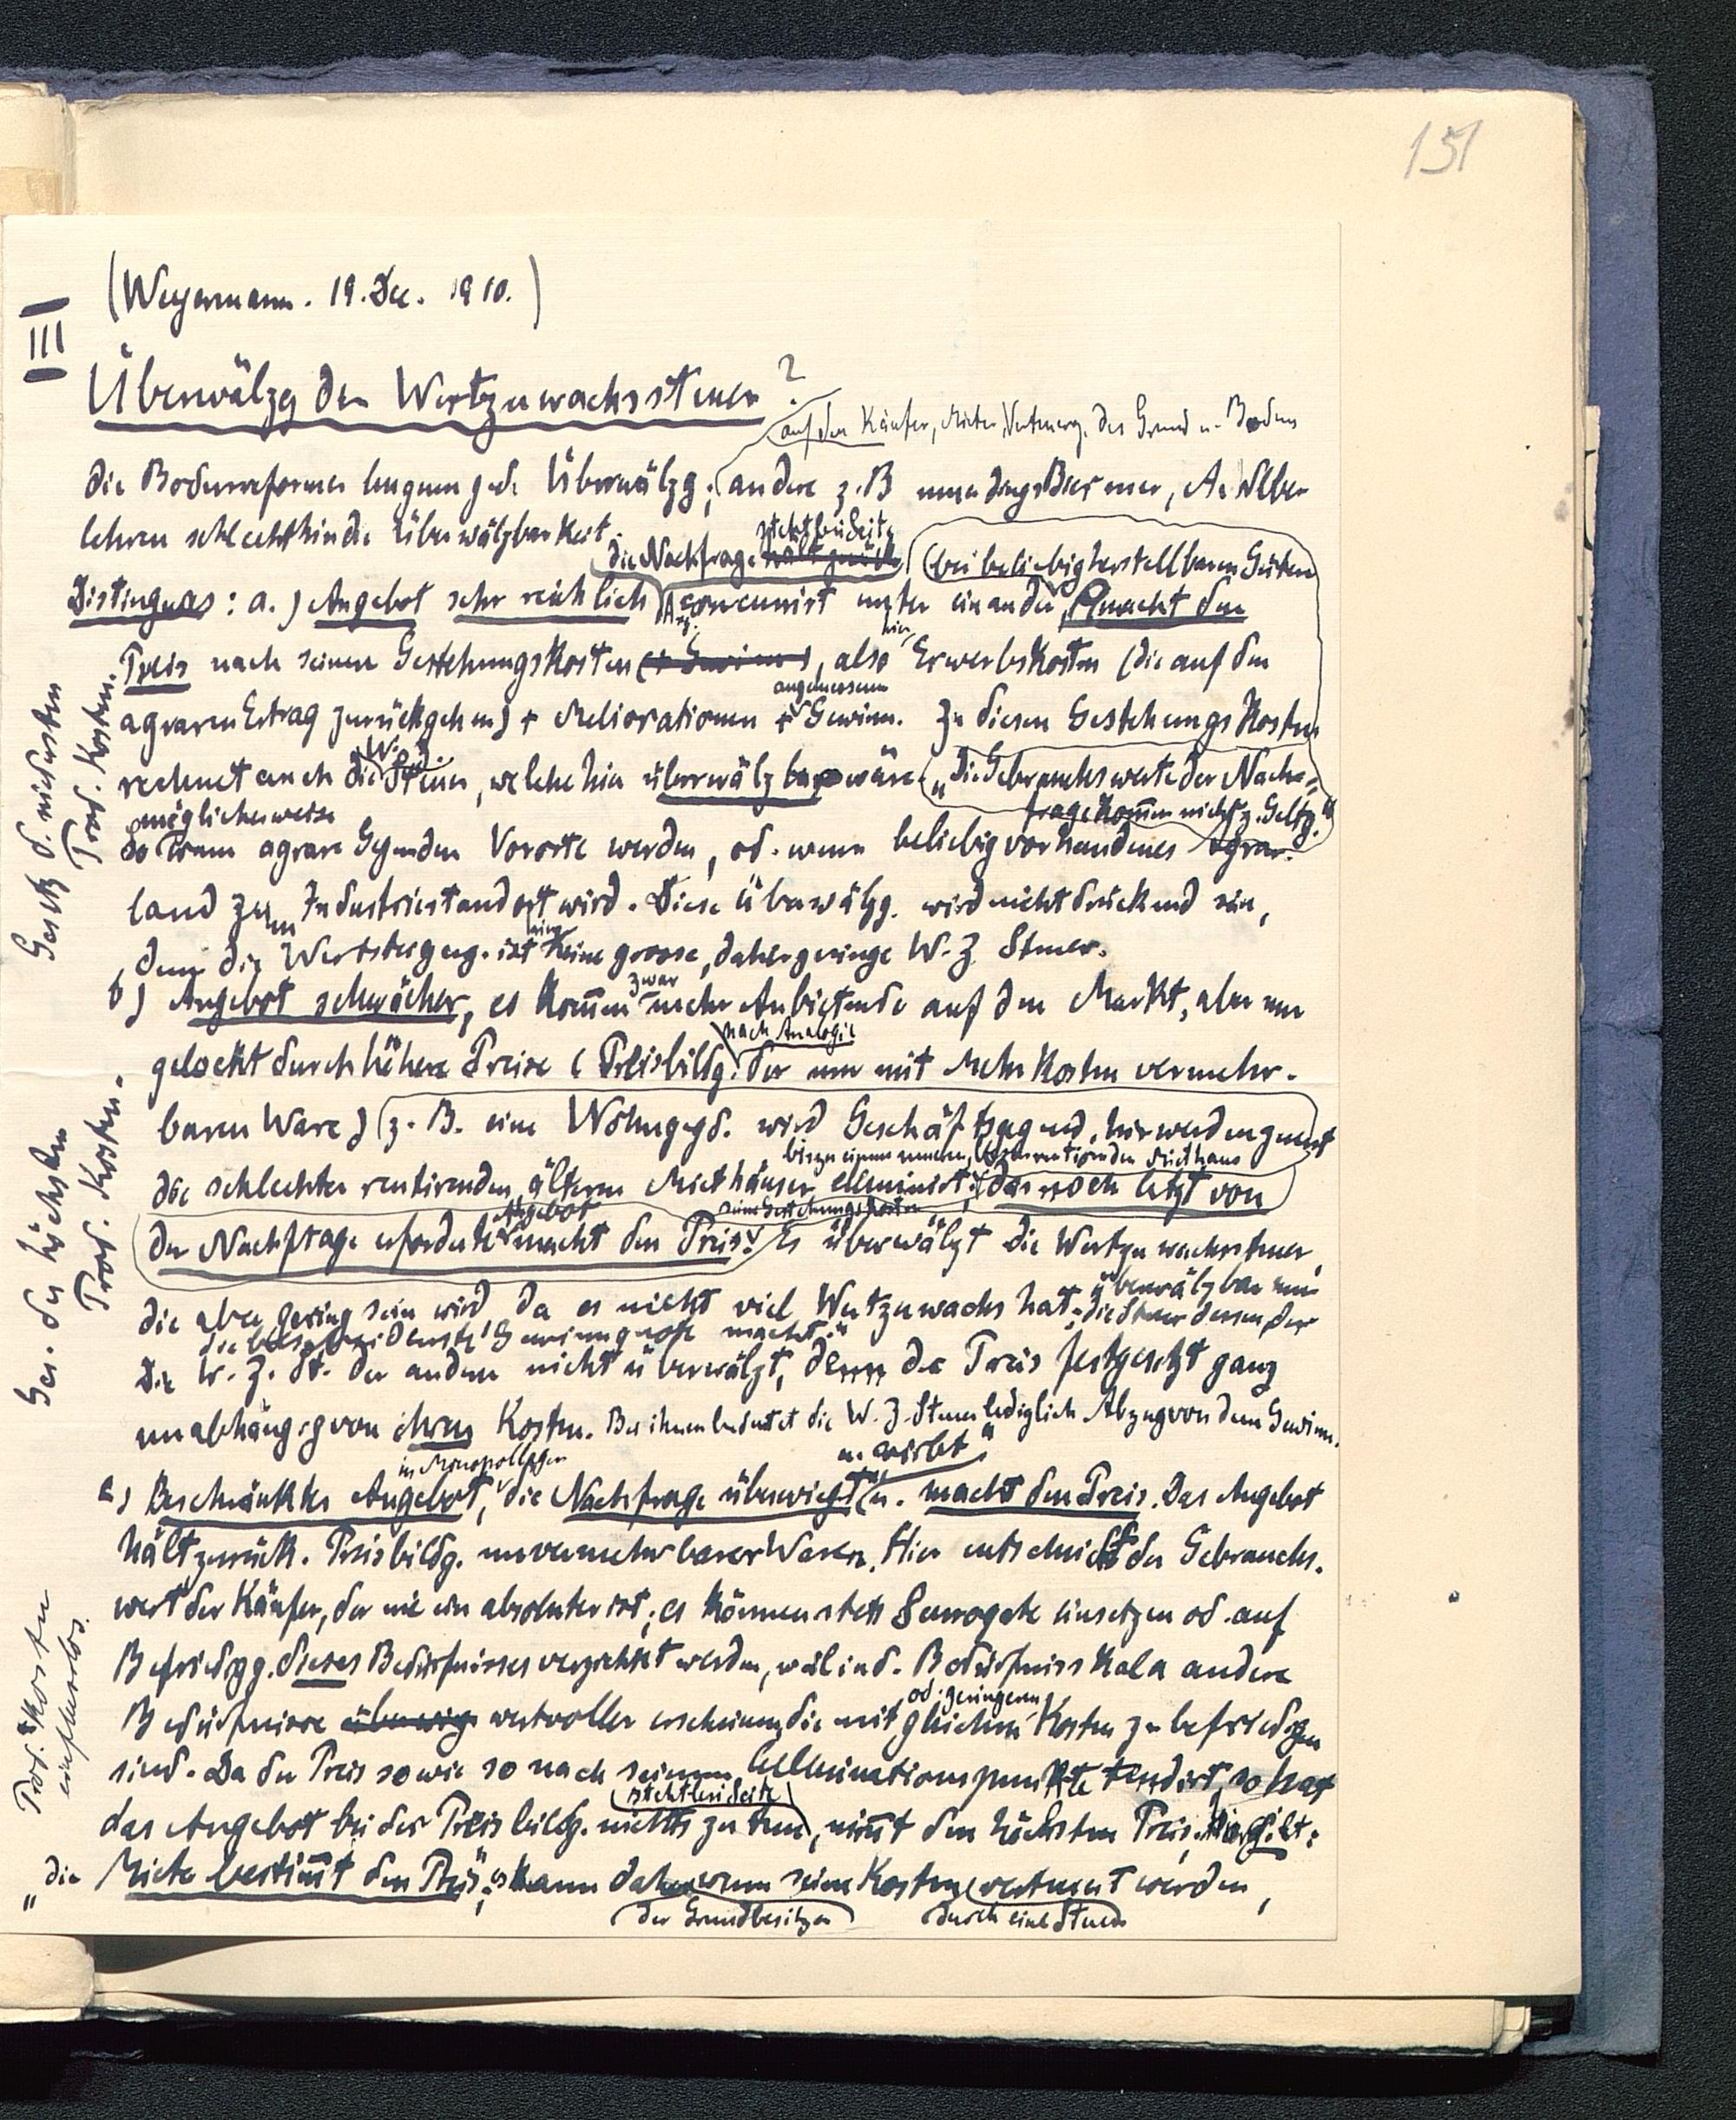 151
III
(Weyermann. 19. Dec. 1910.)
Überwälzg der Wertzuwachssteuer?
auf den Käufer, Mieter, des Grund u. Bodens
die Bodenreformer leugnen jede Überwälzg; andere z. B
lehren schlechthin die Überwälzbarkeit.
die Nachfrage steht bei Seite
(bei beliebig herstellbaren Gütern
Distinguas: a.) Angebot sehr reichlich concurrirt unter einander, macht den
hier
Preis nach seinen Gestehungskosten (+ Gewinn), also Erwerbskosten (die auf den
angemessenen
agraren Ertrag zurückgehen) + Meliorationen + Gewinn. Zu diesen Gestehungskosten
W. Z.
rechnet auch die Steuer, welche hier überwälzbar wäre. „die Gebrauchswerte der Nach-
frage kommen nicht z. Geltg."
möglicherweise
So wenn agrare Gegenden Vororte werden, od. wenn beliebig vorhandenes Agrar-
land zum Industriestandort wird. Diese Überwälzg. wird nicht drückend sein,
hier
denn die Wertsteigerg. ist keine grosse, daher geringe W. Z Steuer.
Gesetz d. niedersten
Prod. Kosten.
zwar
b) Angebot schwächer, es kom̅en mehr Anbietende auf den Markt, aber nur
nach Analogie
gelockt durch höhere Preise (Preisbildg. der nur mit Mehrkosten vermehr-
baren Ware) z. B. eine Wohngegd. wird Geschäftsgegend, hier werden zuerst
bis zu einem neuen, besser rentirenden Miethaus
die schlechter rentirenden, älteren Miethäuser eliminirt: „das noch letzt von
Angebot
seine Gestehungskosten
der Nachfrage erforderte macht den Preis" Es überwälzt die Wertzuwachssteuer,
die aber gering sein wird, da es nicht viel Wertzuwachs hat; überwälzbar nur
die Steuer dessen, der
Gewinnquote macht."
Die W. Z. St. der andern nicht überwälzt, denn der Preis festgesetzt ganz
unabhängig von ihren Kosten. Bei ihnen bedeutet die W. Z. Steuer lediglich Abzug von dem Gewinn.
Ges. der höchsten
Prod. Kosten.
in Monopollagen
u. wirbt"
c) Beschränktes Angebot, die Nachfrage überwiegt u. macht den Preis. Das Angebot
hält zurück. Preisbildg. unvermehrbarer Waren. Hier entscheidet der Gebrauchs-
wert der Käufer, der nie ein absoluter ist; es können stets Surrogate einsetzen od. auf
Befriedigg. dieses Bedürfnisses verzichtet werden, weil in d. Bedürfnisskala andere
od. geringeren
Bedürfnisse überwieg wertvoller erscheinen, die mit gleichen Kosten zu befriedigen
sind. Da der Preis sowieso nach seinem Culminationspunkte tendirt, so hat
steht bei Seite
das Angebot bei der Preisbildg. nichts zu tun, nim̅t den höchsten Preis. Hier gilt:
Prod. Kosten
einflusslos.
„die Miete bestim̅t den Preis"; es kann daher wenn seine Kosten verteuert werden,
der Grundbesitzer
durch eine Steuer